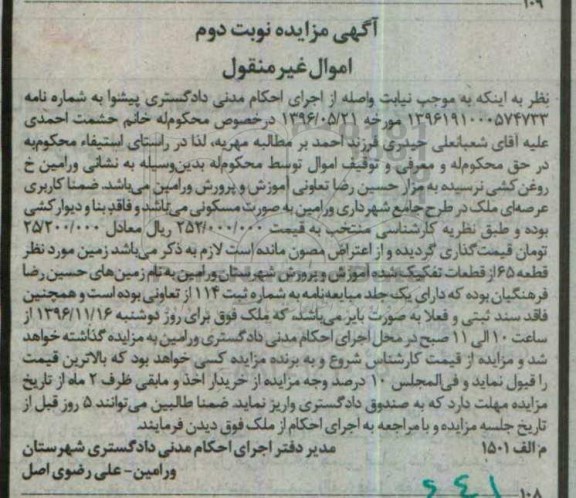 ۱۰۹
آگهی مزایده نوبت دوم
اموال غیر منقول
نظر به اینکه به موجب نیابت واصله از اجرای احکام مدنی دادگستری پیشوا به شماره نامه
۱۳۹۶۱۹۱۰۰۰۵۷۴۷۳۳ مورخه ۱۳۹۶/۰۵/۲۱ درخصوص محکوم‌له خانم حشمت احمدی
علیه آقای شعبانعلی حیدری فرزند احمد بر مطالبه مهریه، لذا در راستای استیفاء محکوم‌به
در حق محکوم‌له و معرفی و توقیف اموال توسط محکوم‌له بدین‌وسیله به نشانی ورامین خ
روغن کشی نرسیده به مزار حسین رضا تعاونی آموزش و پرورش ورامین می‌باشد. ضمنا کاربری
عرصه‌ای ملک در طرح جامع شهرداری ورامین به صورت مسکونی می‌باشد و فاقد بنا و دیوار کشی
بوده و طبق نظریه کارشناسی منتخب به قیمت ۲۵۲/۰۰۰/۰۰۰ ریال معادل ۲۵/۲۰۰/۰۰۰
تومان قیمت‌گذاری گردیده و از اعتراض مصون مانده است لازم به ذکر می‌باشد زمین مورد نظر
قطعه ۶۵ از قطعات تفکیک شده آموزش و پرورش شهرستان ورامین به نام زمین‌های حسین رضا
فرهنگیان بوده که دارای یک جلد مبایعه‌نامه به شماره ثبت ۱۱۴ از تعاونی بوده است و همچنین
فاقد سند ثبتی و فعلا به صورت بایر می‌باشد که ملک فوق برای روز دوشنبه ۱۳۹۶/۱۱/۱۶ از
ساعت ۱۰ الی ۱۱ صبح در محل اجرای احکام مدنی دادگستری ورامین به مزایده گذاشته خواهد
شد و مزایده از قیمت کارشناس شروع و به برنده مزایده کسی خواهد بود که بالاترین قیمت
را قبول نماید و فی‌المجلس ۱۰ درصد وجه مزایده از خریدار اخذ و مابقی ظرف ۲ ماه از تاریخ
مزایده مهلت دارد که به صندوق دادگستری واریز نماید. ضمنا طالبین می‌توانند ۵ روز قبل از
تاریخ جلسه مزایده و با مراجعه به اجرای احکام از ملک فوق دیدن فرمایند.
م الف ۱۵۰۱ مدیر دفتر اجرای احکام مدنی دادگستری شهرستان
ورامین- علی رضوی اصل
۱۰۸